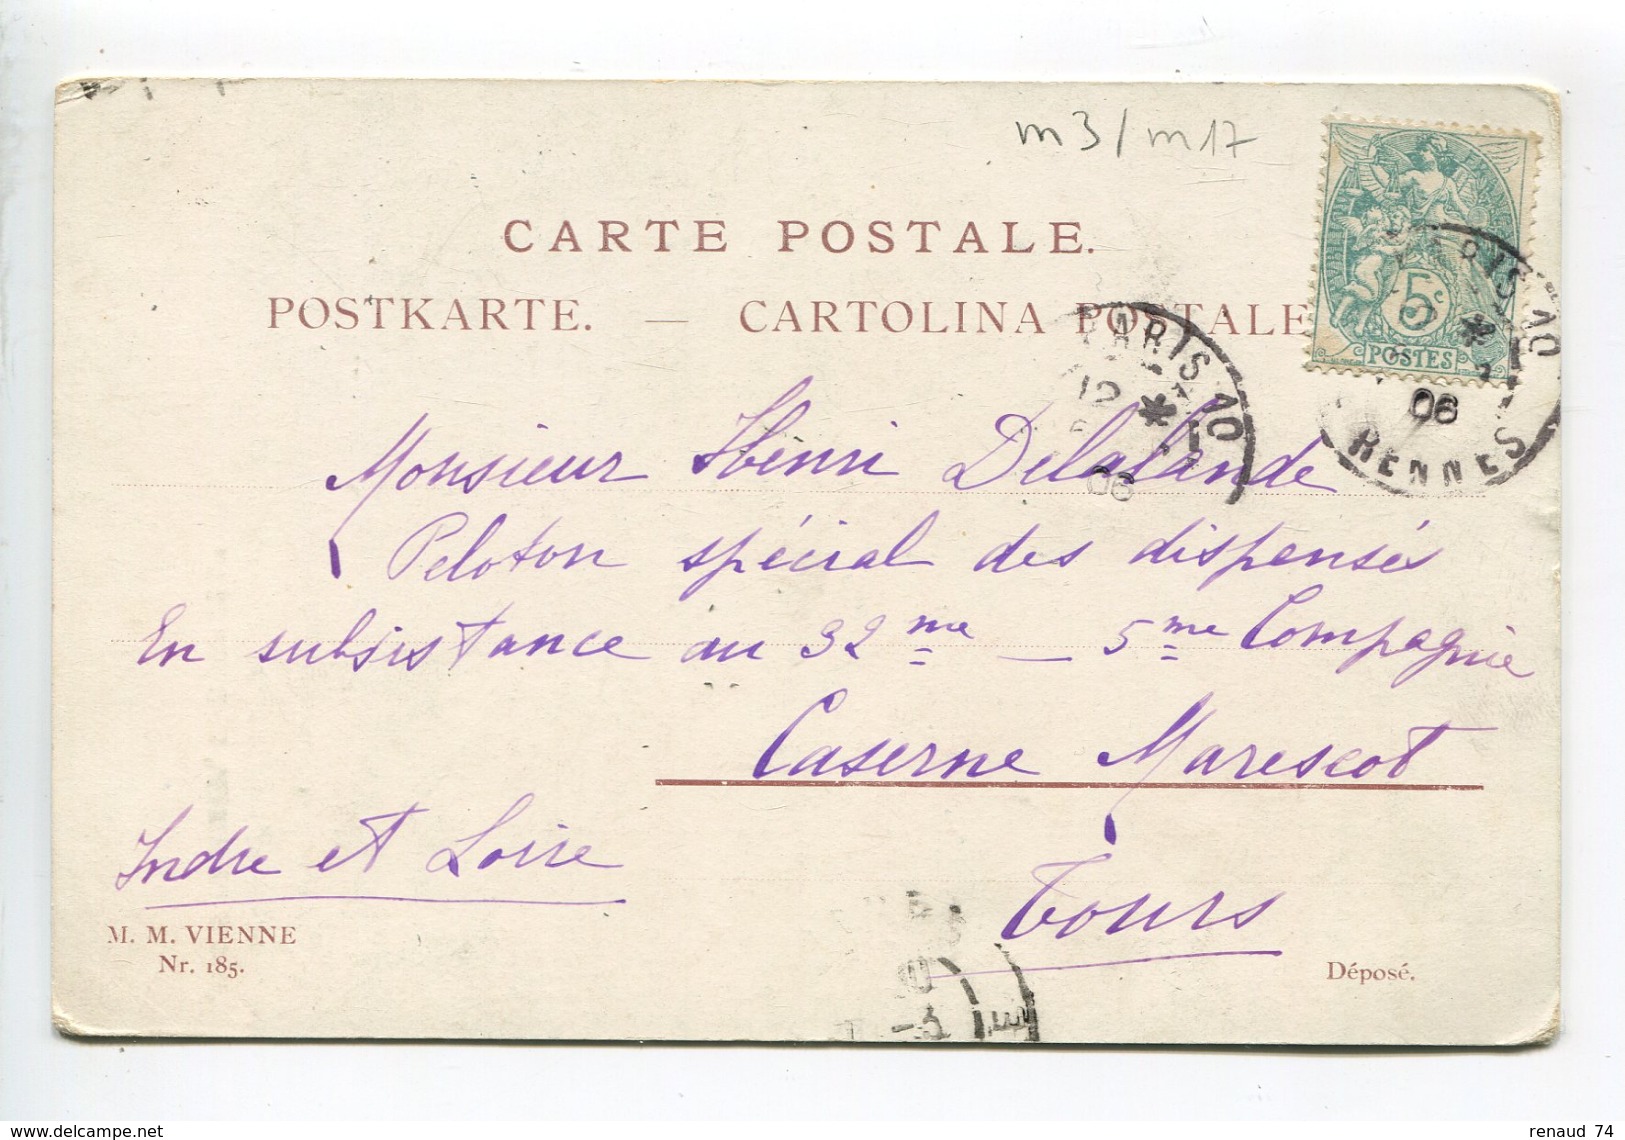 m3/m17
CARTE POSTALE.
POSTKARTE. — CARTOLINA POSTALE
5c
POSTES
PARIS 10
12 *
06
PARIS 10
*
06
R. RENNES
Monsieur Henri Delalande
Peloton spécial des dispensés
En subsistance au 32me — 5me Compagnie
Caserne Marescot
Indre et Loire
Tours
M. M. VIENNE
Nr. 185.
Déposé.
www.delcampe.net
renaud 74